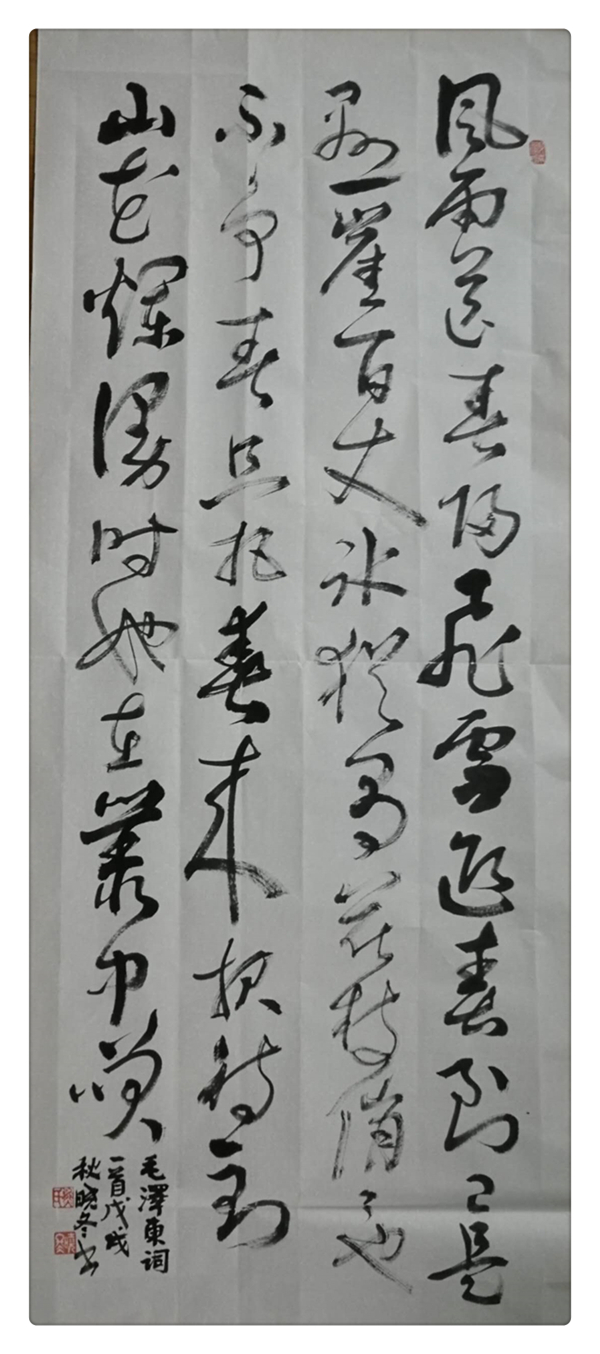 風雨送春归飛雪迎春到已是
懸崖百丈冰猶有花枝俏〻也
不争春只把春来报待到
山花爛漫时她在叢中笑
毛澤東詞
一首戊戌
秋晓冬书